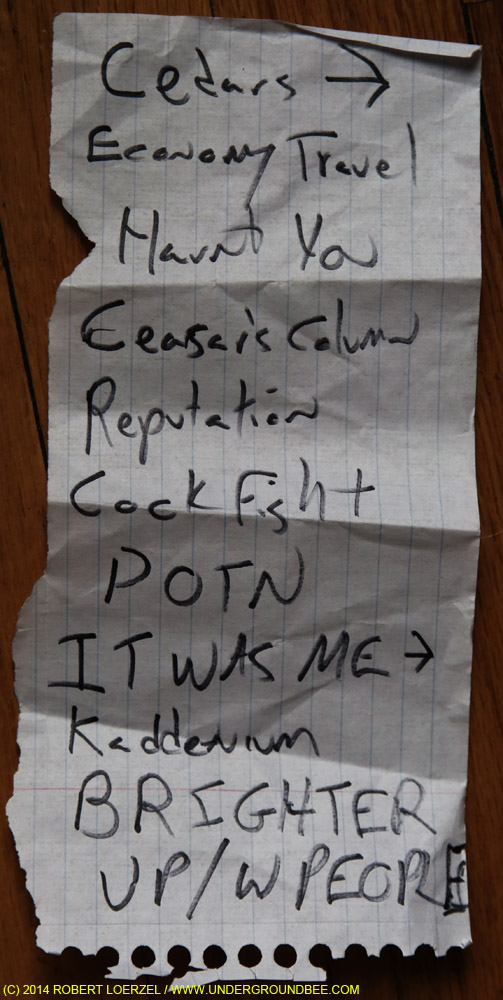 Cedars →
Economy Travel
Haunt You
Ceasar's Column
Reputation
Cock Fight
POTN
IT WAS ME →
Kaddenium
BRIGHTER
UP/W PEOPLE
(C) 2014 ROBERT LOERZEL / WWW.UNDERGROUNDBEE.COM